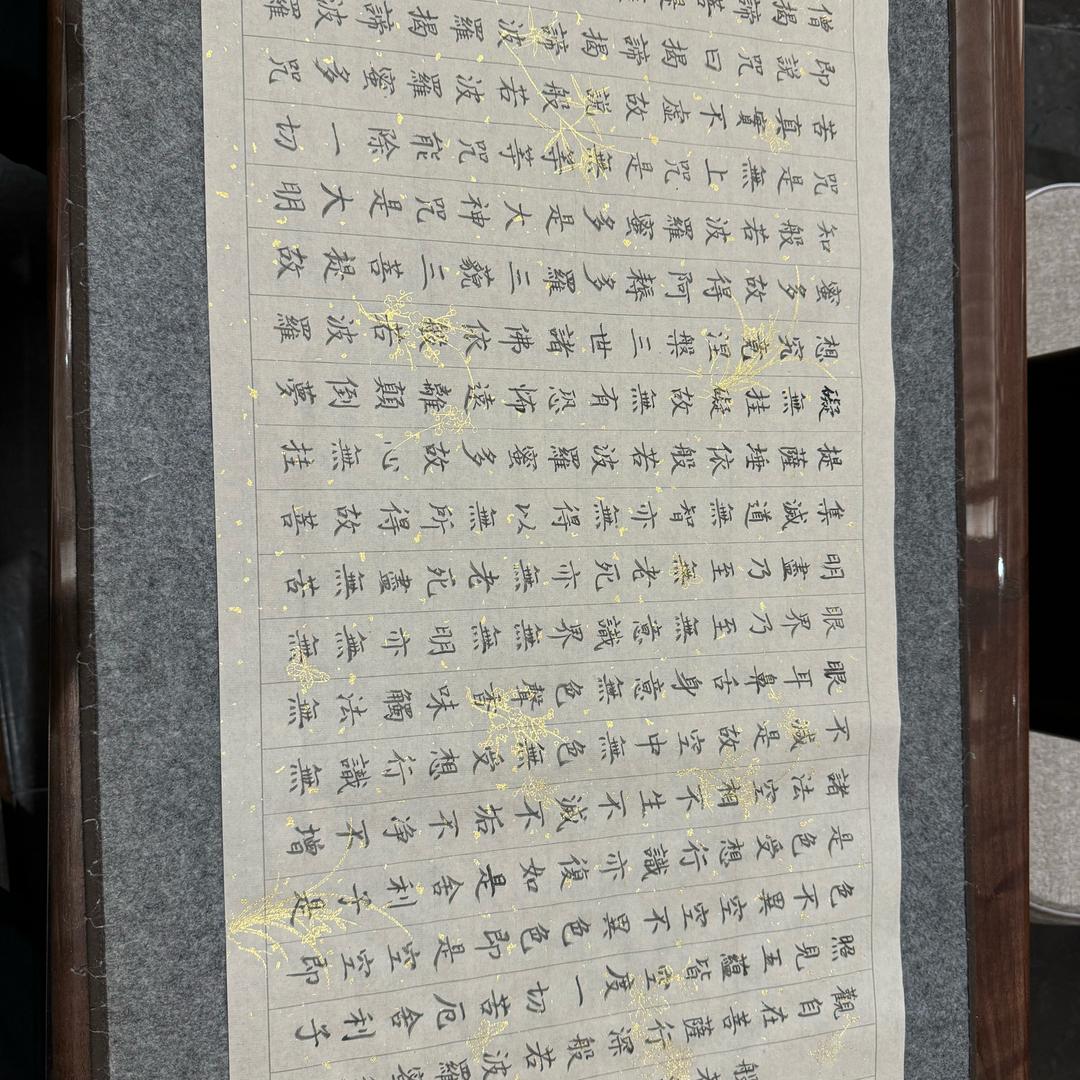 般若
觀自在菩薩行深般若波羅蜜
照見五蘊皆空度一切苦厄舍利子
色不異空空不異色色即是空空即
是色受想行識亦復如是舍利子是
諸法空相不生不滅不垢不净不增
不減是故空中無色無受想行識無
眼耳鼻舌身意無色聲香味觸法無
眼界乃至無意識界無無明亦無無
明盡乃至無老死亦無老死盡無苦
集滅道無智亦無得以無所得故菩
提薩埵依般若波羅蜜多故心無挂
礙無挂礙故無有恐怖遠離顛倒夢
想究竟涅槃三世諸佛依般若波羅
蜜多故得阿耨多羅三藐三菩提故
知般若波羅蜜多是大神咒是大明
咒是無上咒是無等等咒能除一切
苦真實不虛故說般若波羅蜜多咒
即說咒曰揭諦揭諦波羅揭諦波羅
僧揭諦菩提